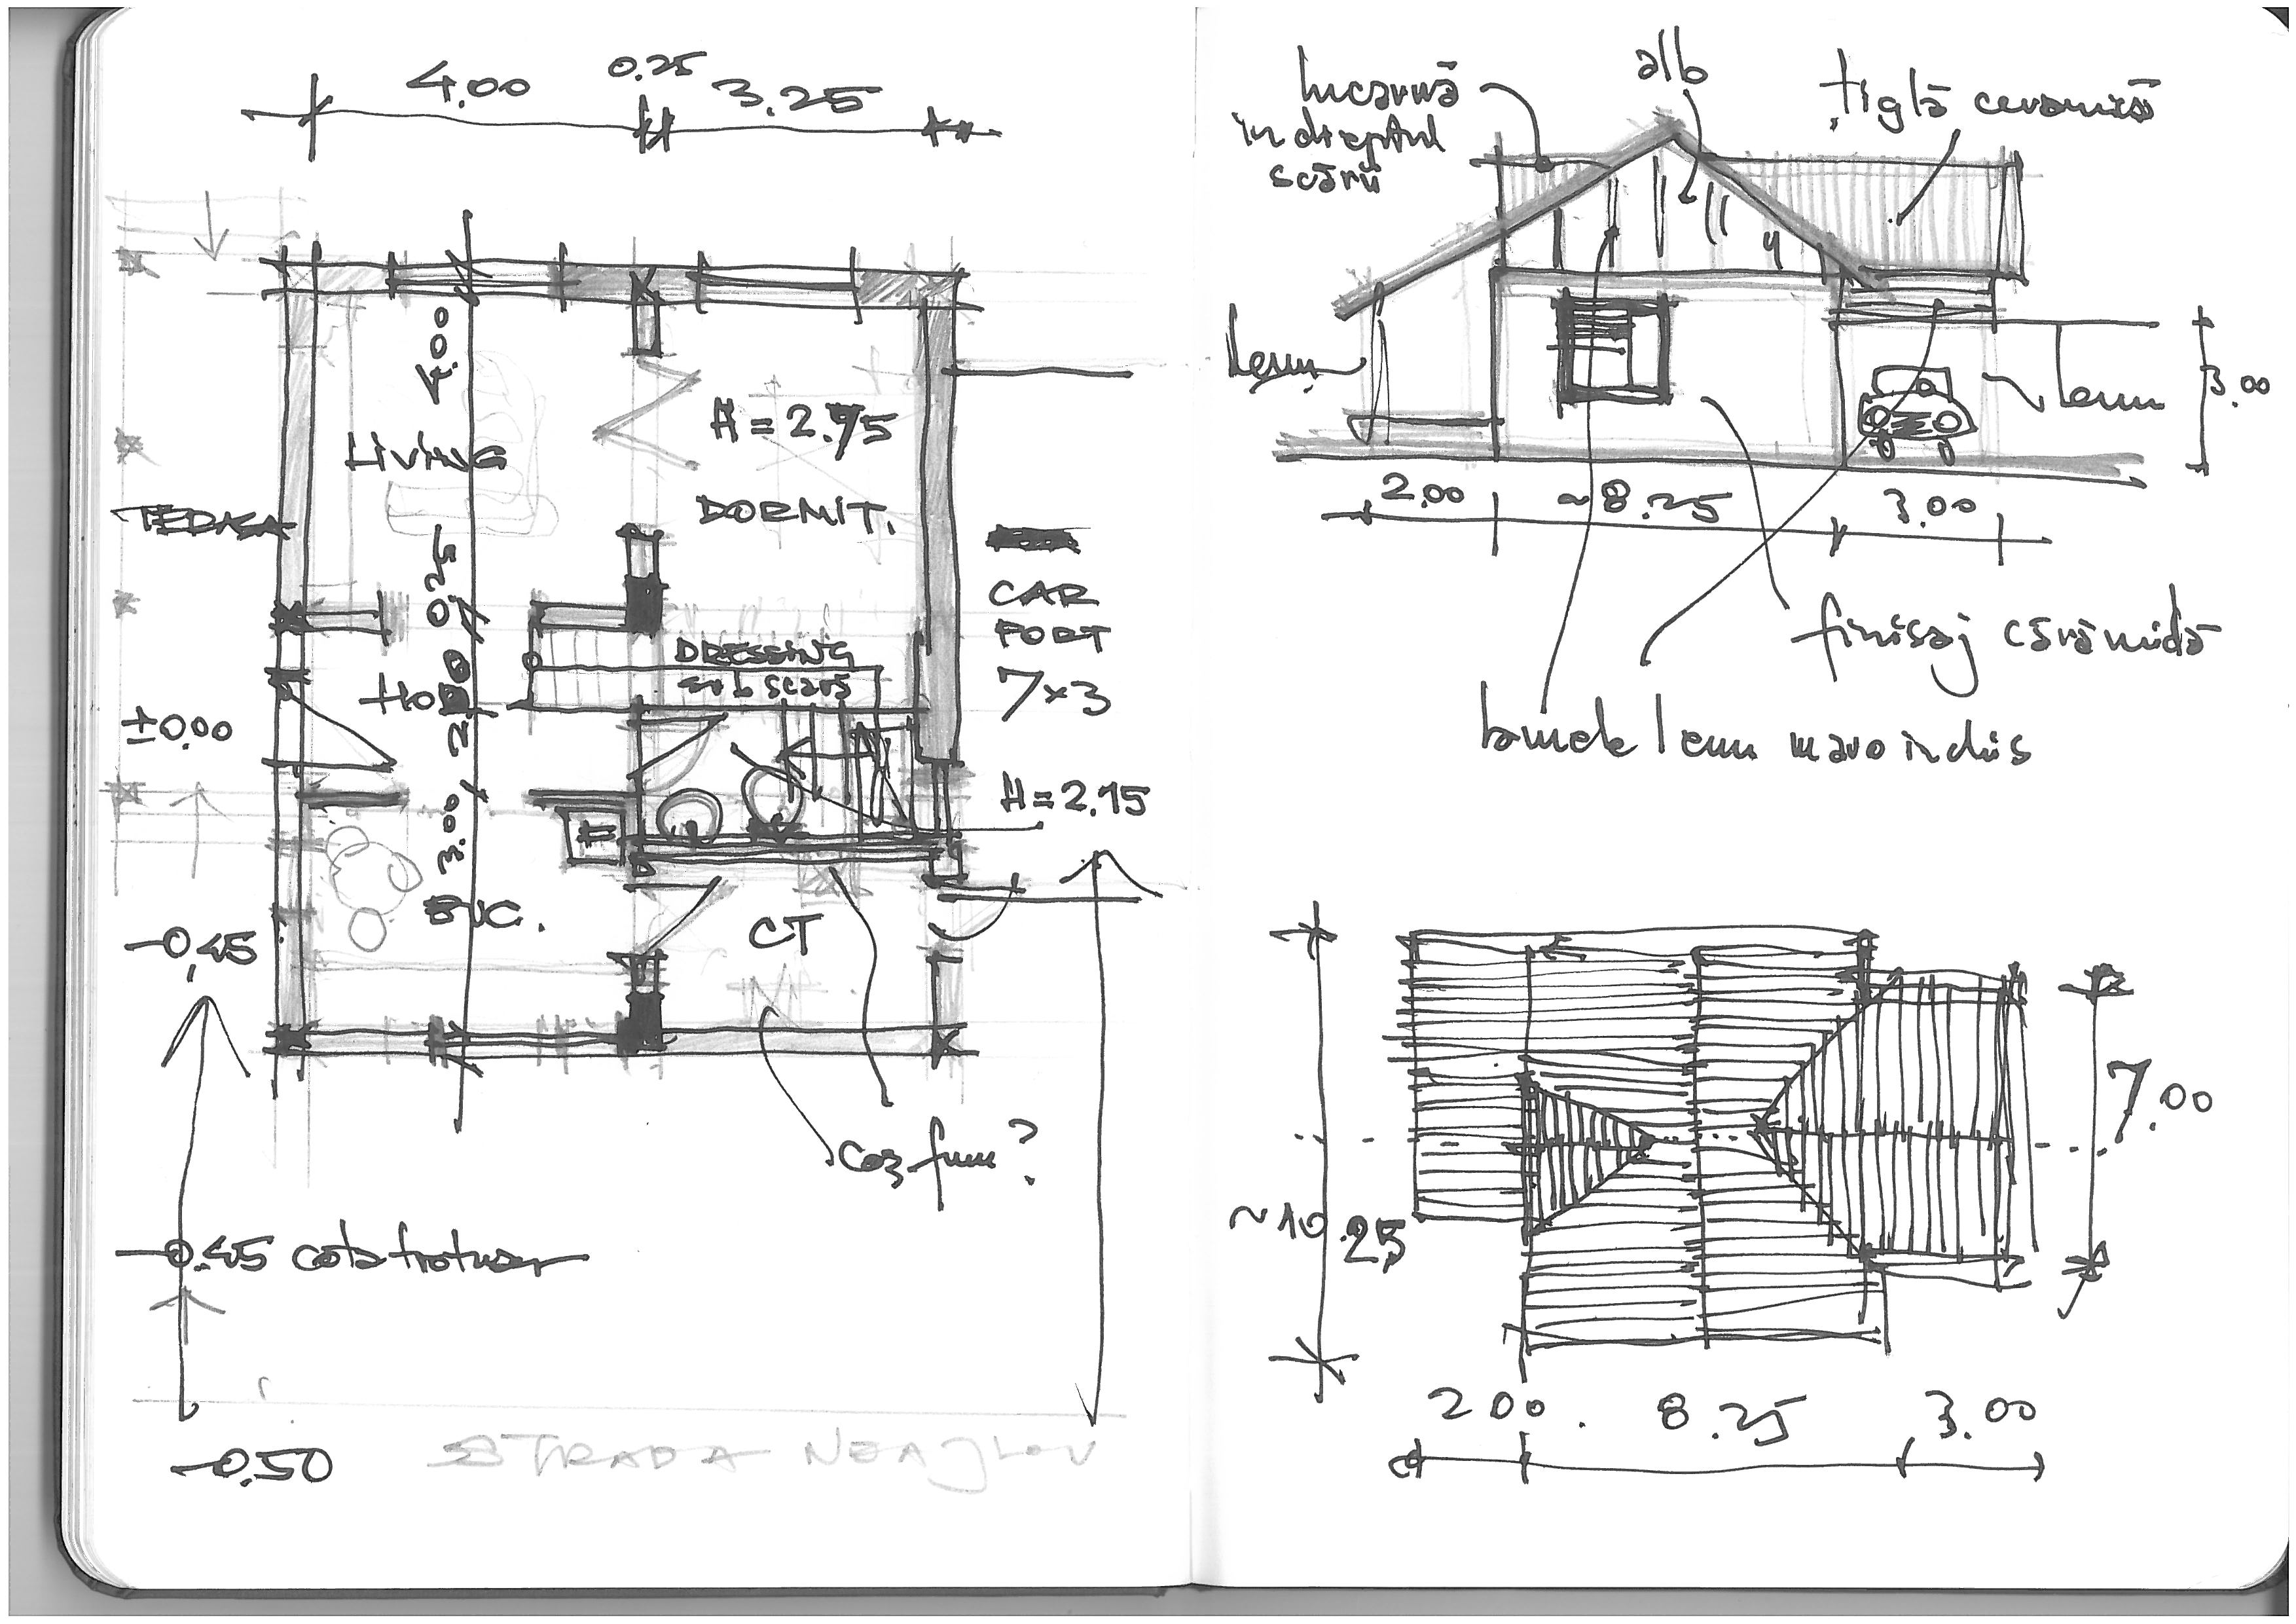 4.00
0.25
3.25
4.00
LIVING
H = 2.75
DORMIT.
TERASA
0.25
CAR
PORT
7×3
DRESSING
sub scară
HOL
2.00
±0.00
H = 2.75
3.00
BUC.
CT
-0,45
Coș fum?
-0.45 cota trotuar
-0.50
STRADA NEAJLOV
lucarnă
in dreptul
scării
alb
țiglă ceramică
lemn
lemn
3.00
2.00
~8.25
3.00
finisaj cărămidă
lamele lemn maro inchis
~10.25
7.00
2.00
8.25
3.00